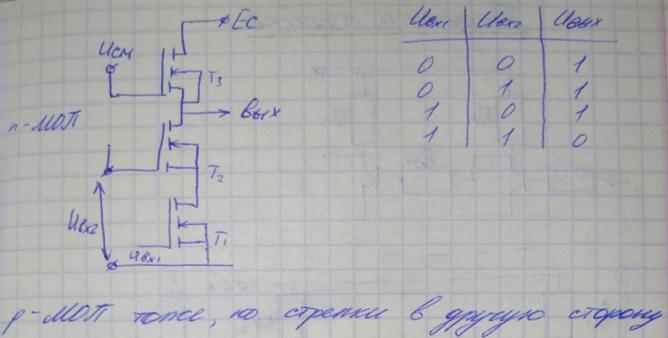 Uсм
Eс
T3
n-МОП
Вых
T2
Uвх2
Uвх1
T1
Uвх1 Uвх2 Uвых
0 0 1
0 1 1
1 0 1
1 1 0
p-МОП тоже, но стрелки в другую сторону